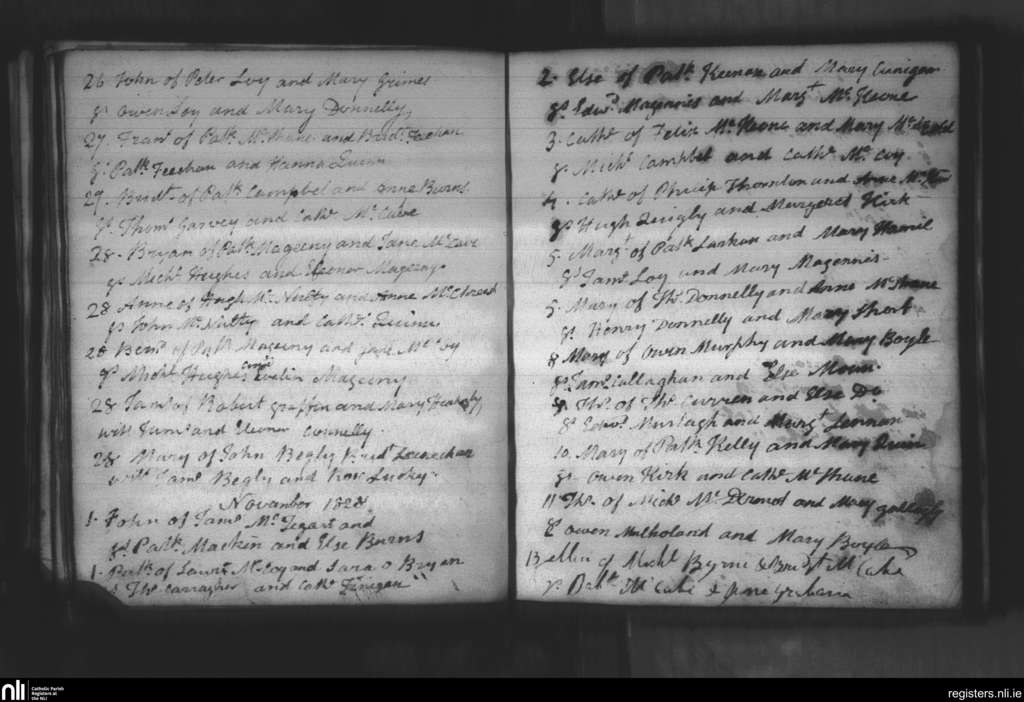 26 John of Peter Loy and Mary Grimes
gs Owen Loy and Mary Donnelly
27. Frans of Patk Mc Shane and Bridt Feehan
gs Patk Feechan and Hanna Quinn
27. Bridt of Patk Campbel and Anne Burns
gs Thoms Garvey and Cathe Mc Cabe
28. Bryan of Patk Mageeny and Jane Mc
gs Michl Hughes and Eleonor Mageeny
28 Anne of Hugh Mc Nulty and Anne
gs John Mc Nulty and Cathe Quinn
28 of Patk Mageeny and Jane Mc
gs Michl Hughes Evelin Mageeny
28 Jams of Robert Graffin and Mary
witt Jams and Eleonor Connelly
28 Mary of John Begly Bridt
witt Jams Begly and
November 1828
1. John of Jams Mc Tegart and
gs Patk Mackin and Else Burns
1. Patk of Laure Mc Coy and Sara O Bryan
gs Ths Carragher and Cathe Finigan
2. Else of Patk Keenan and Mary Cunigan
gs Edwd Magennis and Margt Mc Keone
3. Cathe of Felix Mc Keone and Mary Mc
gs Michl Campbel and Cathe Mc Coy
4. Cathe of Philip Thornton and Anne Mc
gs Hugh Quigly and Margeret Kirk
5. Margt of Patk Larkan and Mary Hamil
gs Jams Loy and Mary Magennis
5. Mary of Ths Donnelly and Anne Mc Shane
gs Henry Donnelly and Mary Short
8 Mary of Owen Murphy and Mary Boyle
gs Jams Callaghan and Else Moun
9. Ths of Ths Curren and Else Do
gs Edwd Murtagh and Margt Lennan
10. Mary of Patk Kelly and Mary Quin
gs Owen Kirk and Cathe Mc Shane
11 Ths of Michl Mc Dermot and Mary
gs Owen Mulholand and Mary Boyle
13 Ellin of Michl Byrne & Bridt Mc Cabe
gs Mc Cabe & Jane Graham
nli
Catholic Parish
Registers at
the NLI
registers.nli.ie